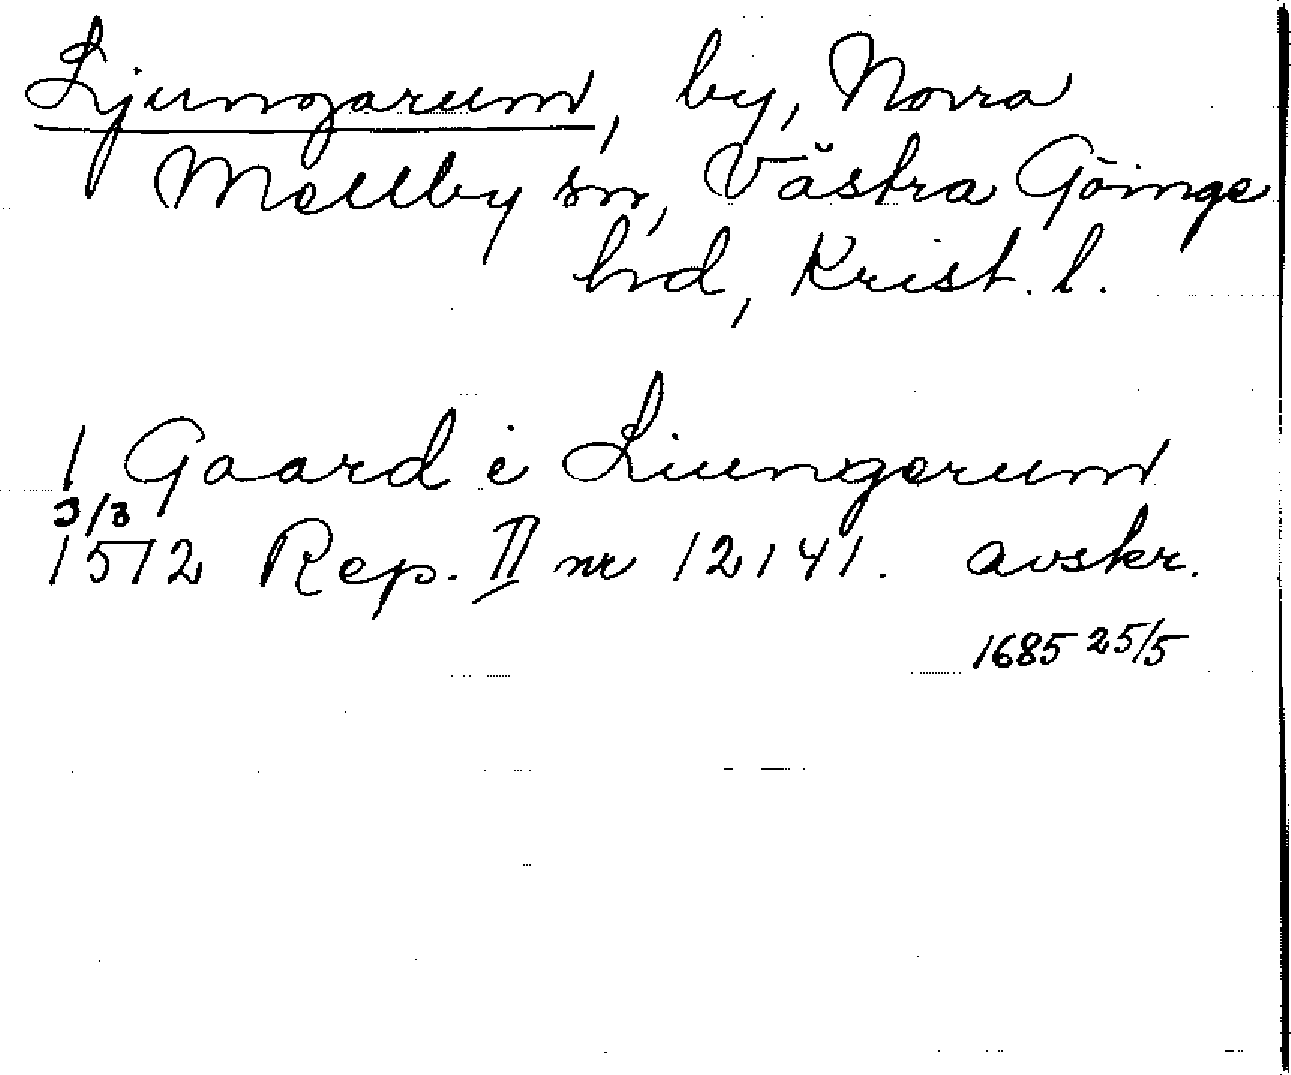 Ljungarum, by, Norra
Mellby sn, Västra Göinge
hd, Krist. l.
1 Gaard i Liungerum
3/3
1572 Rep. II nr 12141. avskr.
1685 25/5